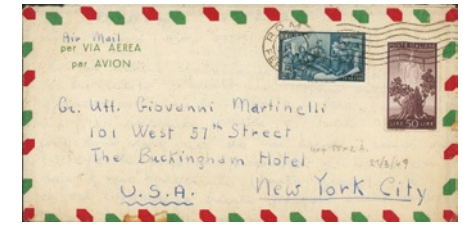 Air Mail
per VIA AEREA
per AVION
ROMA
POSTE ITALIANE
LIRE 50 LIRE
Gr. Uff. Giovanni Martinelli
101 West 57th Street
The Buckingham Hotel
U.S.A.
New York City